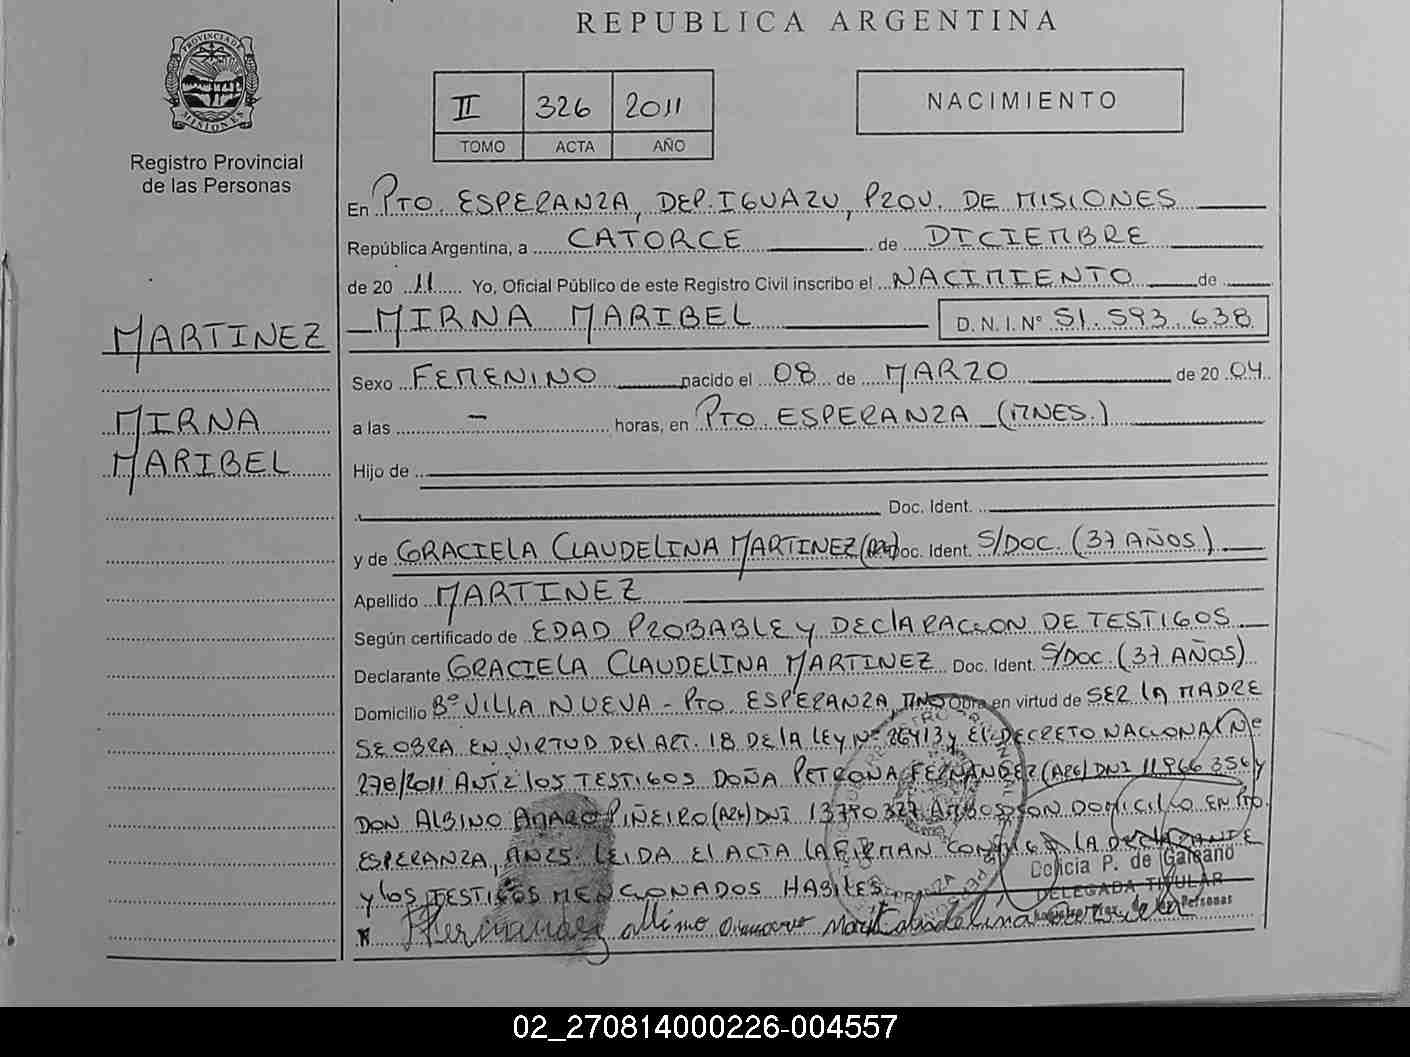 REPUBLICA ARGENTINA
PROVINCIA DE MISIONES
Registro Provincial
de las Personas
II 326 2011
TOMO ACTA AÑO
NACIMIENTO
En PTO. ESPERANZA, DEP. IGUAZU, PROV. DE MISIONES
República Argentina, a CATORCE de DICIEMBRE
de 20 11 Yo, Oficial Público de este Registro Civil inscribo el NACIMIENTO de
MIRNA MARIBEL D.N.I. N° 51.593.638
MARTINEZ
MIRNA
MARIBEL
Sexo FEMENINO nacido el 08 de MARZO de 20 04
a las - horas, en PTO. ESPERANZA (MNES.)
Hijo de
Doc. Ident.
y de GRACIELA CLAUDELINA MARTINEZ (ARG) Doc. Ident. S/DOC. (37 AÑOS)
Apellido MARTINEZ
Según certificado de EDAD PROBABLE y DECLARACION DE TESTIGOS
Declarante GRACIELA CLAUDELINA MARTINEZ Doc. Ident. S/DOC (37 AÑOS)
Domicilio B° VILLA NUEVA - PTO. ESPERANZA, MNS Obra en virtud de SER LA MADRE
SE OBRA EN VIRTUD DEL ART. 18 DE LA LEY N° 26413 y EL DECRETO NACIONAL N°
278/2011 ANTE LOS TESTIGOS DOÑA PETRONA FERNANDEZ (ARG) DNI 11966356 y
DON ALBINO AMARO PIÑEIRO (ARG) DNI 13790327 AMBOS CON DOMICILIO EN PTO.
ESPERANZA, MNES. LEIDA EL ACTA LA FIRMAN CONMIGO LA DECLARANTE
y los TESTIGOS MENCIONADOS HABILES.
Delicia P. de Galeano
DELEGADA TITULAR
Registro Prov. de las Personas
02_270814000226-004557